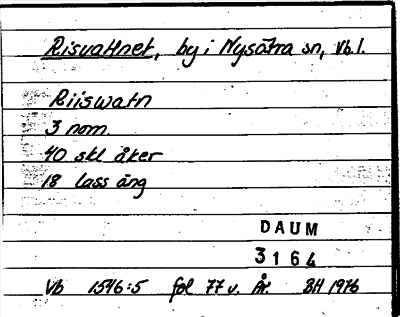 Risvattnet, by i Nysätra sn, Vb. l.
Riiswatn
3 nom.
40 skl åker
18 lass äng
DAUM
3164
Vb 1546:5 fol 77 v. År. BH 1976